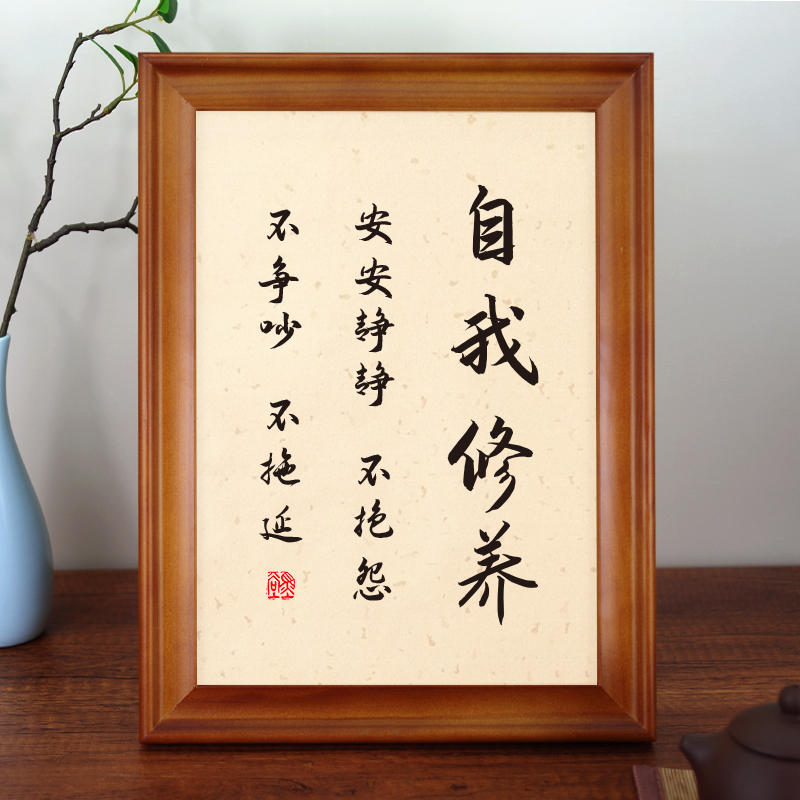 自我修养
安安静静 不抱怨
不争吵 不拖延